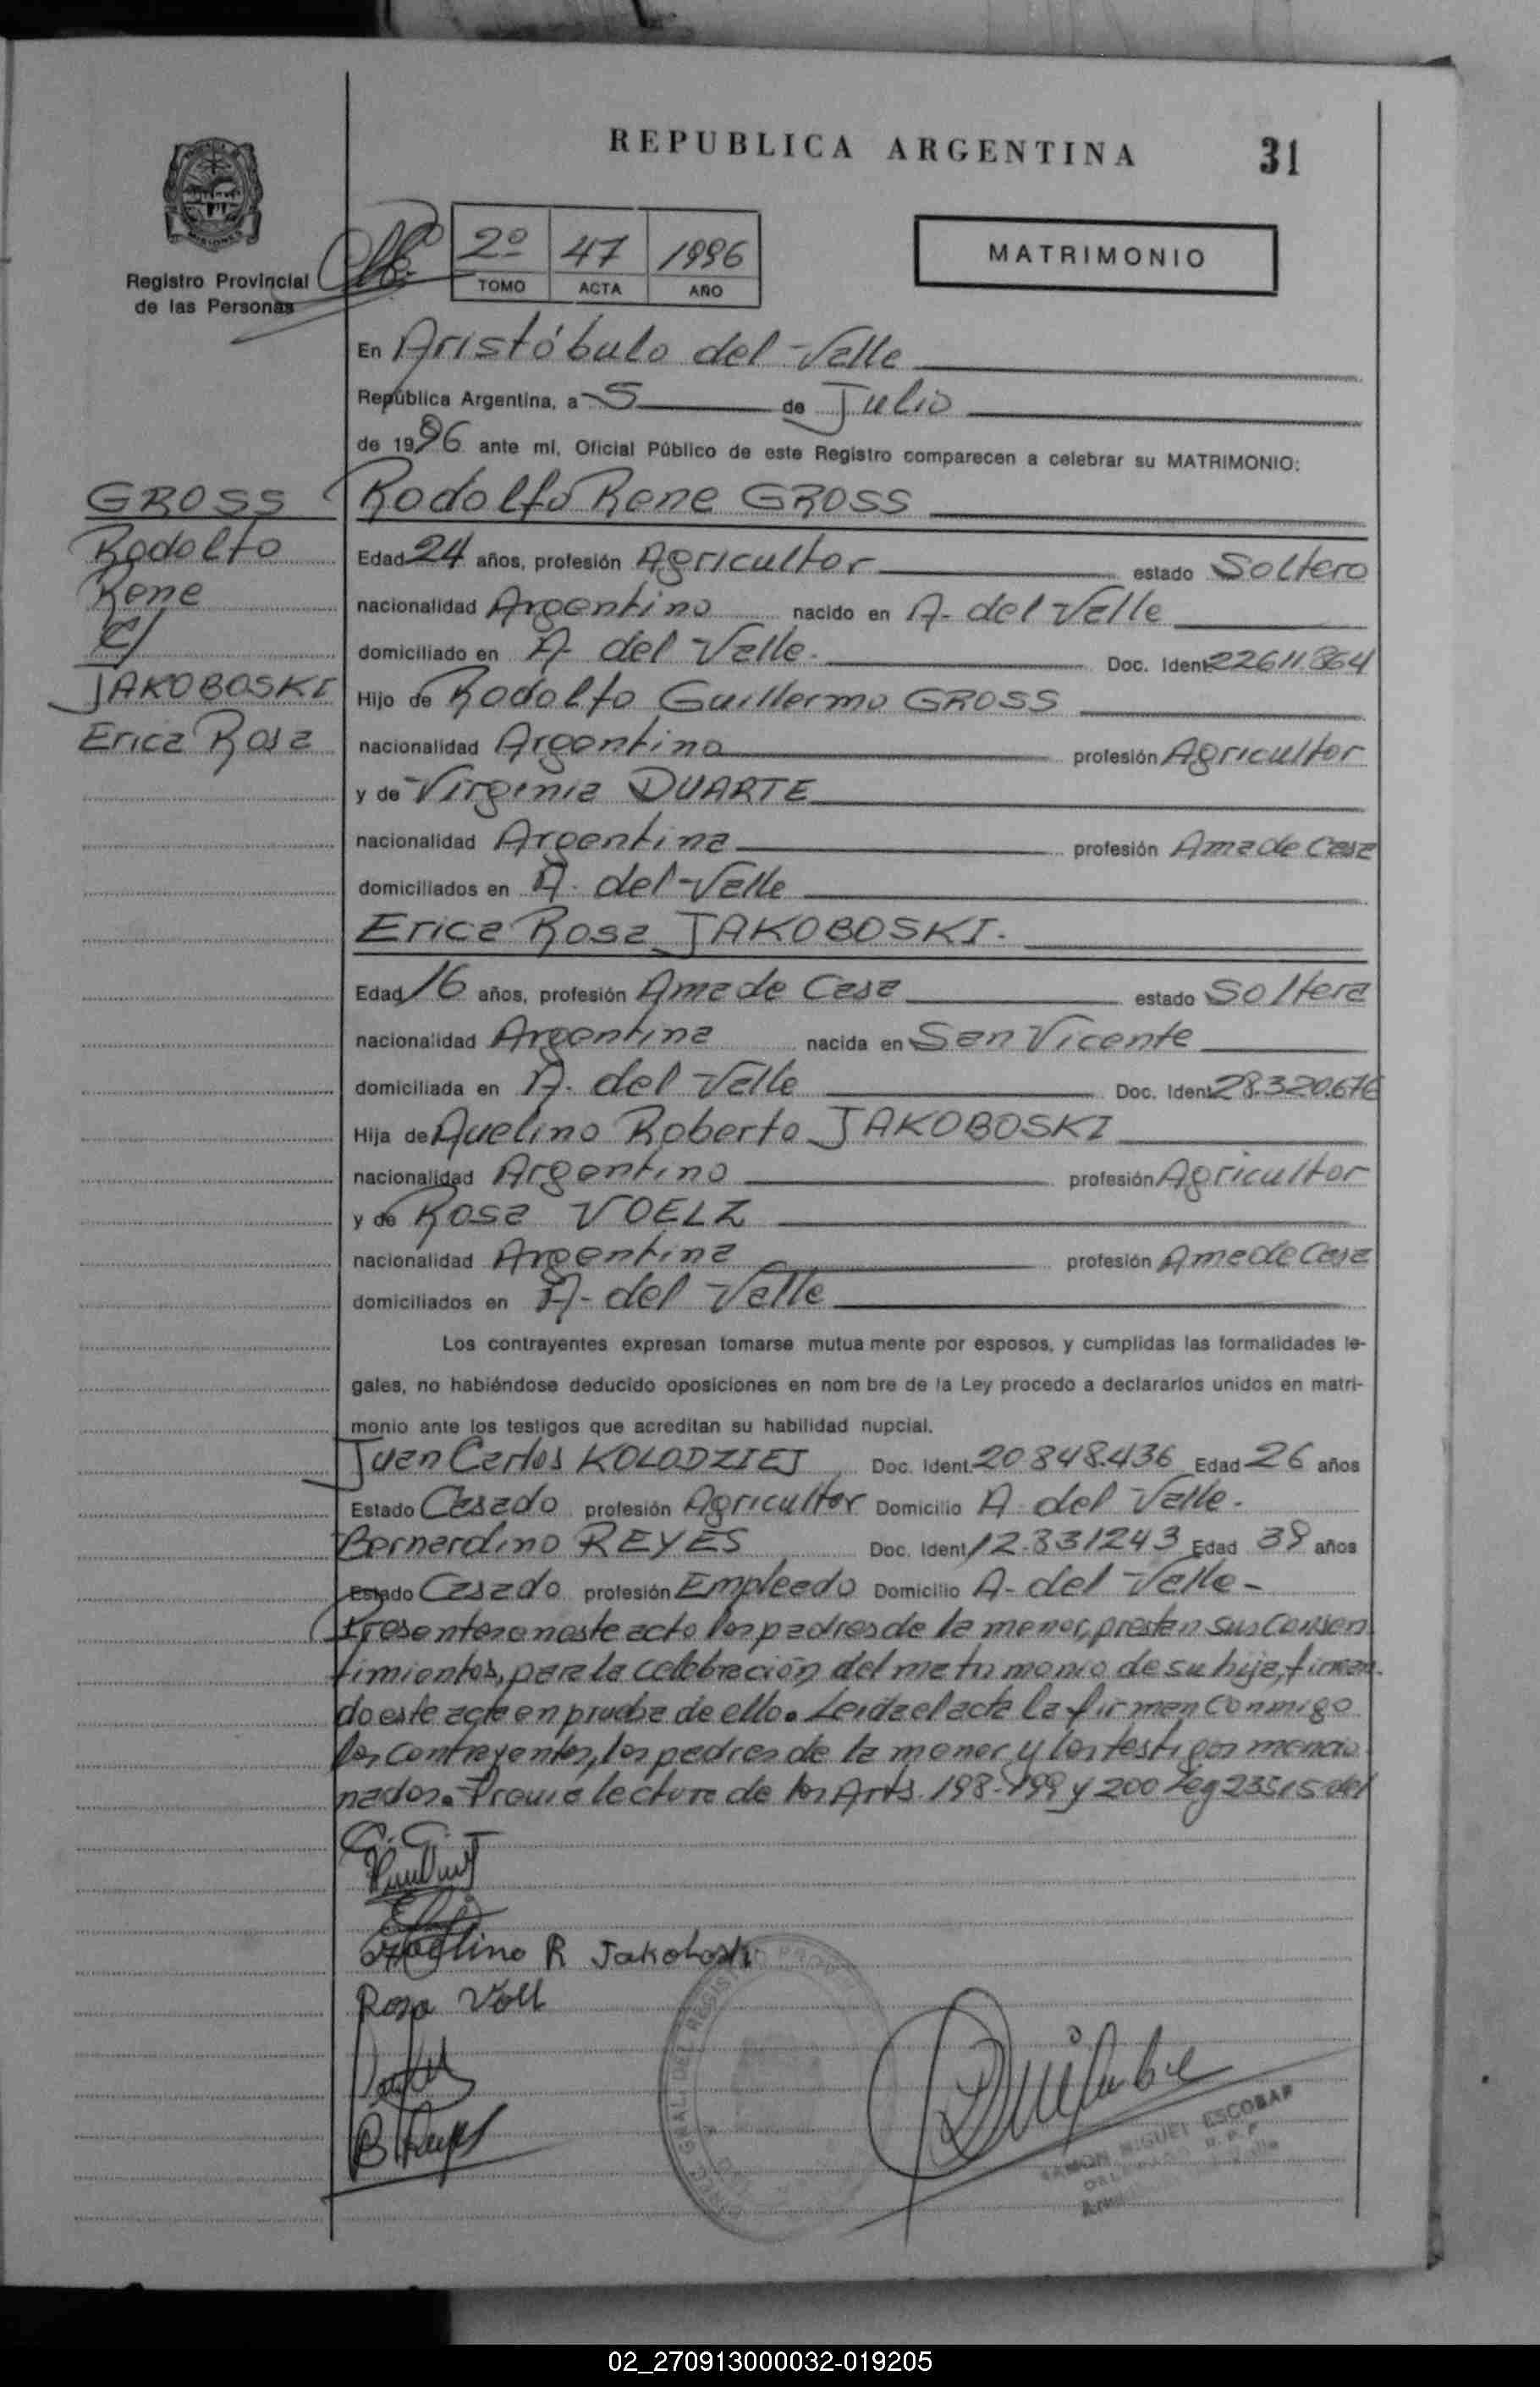 REPUBLICA ARGENTINA
31
MISIONES
Registro Provincial
de las Personas
2º 47 1996
TOMO ACTA AÑO
MATRIMONIO
En Aristóbulo del Valle
República Argentina, a 5 de Julio
de 1996 ante mi, Oficial Público de este Registro comparecen a celebrar su MATRIMONIO:
GROSS
Rodolfo
Rene
C/
JAKOBOSKI
Erica Rosa
Rodolfo Rene GROSS
Edad 24 años, profesión Agricultor estado Soltero
nacionalidad Argentino nacido en A. del Valle
domiciliado en A. del Valle. Doc. Ident. 22611.864
Hijo de Rodolfo Guillermo GROSS
nacionalidad Argentino profesión Agricultor
y de Virginia DUARTE
nacionalidad Argentina profesión Ama de Casa
domiciliados en A. del Valle
Erica Rosa JAKOBOSKI.
Edad 16 años, profesión Ama de Casa estado Soltera
nacionalidad Argentina nacida en San Vicente
domiciliada en A. del Valle Doc. Ident. 28.320.676
Hija de Avelino Roberto JAKOBOSKI
nacionalidad Argentino profesión Agricultor
y de Rosa VOELZ
nacionalidad Argentina profesión Ama de Casa
domiciliados en A- del Valle
Los contrayentes expresan tomarse mutua mente por esposos, y cumplidas las formalidades le-
gales, no habiéndose deducido oposiciones en nom bre de la Ley procedo a declararlos unidos en matri-
monio ante los testigos que acreditan su habilidad nupcial.
Juan Carlos KOLODZIEJ Doc. Ident. 20.848.436 Edad 26 años
Estado Casado profesión Agricultor Domicilio A del Valle.
Bernardino REYES Doc. Ident. 12.831243 Edad 38 años
Estado Casado profesión Empleado Domicilio A- del Valle-
Presentes en este acto los padres de la menor, prestan sus consen
timientos, para la celebración del matrimonio de su hija, firman
do este acta en prueba de ello. Leida el acta la firman conmigo
los contrayentes, los padres de la menor y los testigos mencio
nados. Previa lectura de los Arts. 198-199 y 200 Ley 23515 del
C. C.
Avelino R Jakoboski
Rosa Voll
B Reyes
RAMON MIGUEL ESCOBAR
02_270913000032-019205